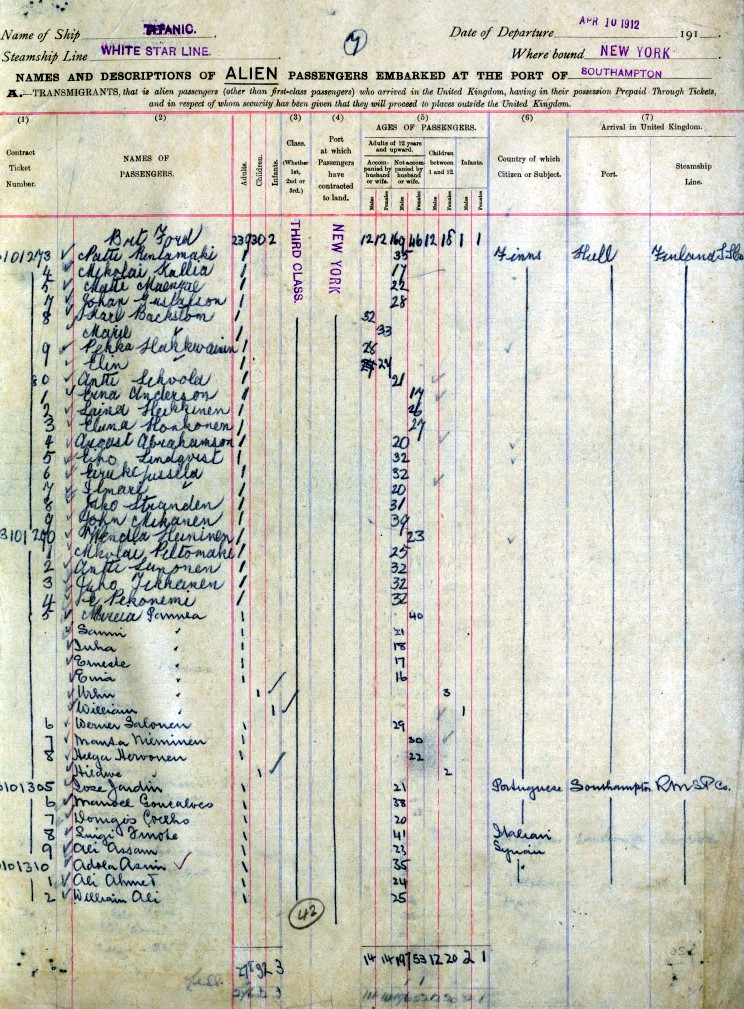 Name of Ship TITANIC. Date of Departure APR 10 1912 191
Steamship Line WHITE STAR LINE. 7 Where bound NEW YORK
NAMES AND DESCRIPTIONS OF ALIEN PASSENGERS EMBARKED AT THE PORT OF SOUTHAMPTON
A.—TRANSMIGRANTS, that is alien passengers (other than first-class passengers) who arrived in the United Kingdom, having in their possession Prepaid Through Tickets,
and in respect of whom security has been given that they will proceed to places outside the United Kingdom.
(1) (2) (3) (4) (5) (6) (7)
Contract Ticket Number.
NAMES OF PASSENGERS.
Adults.
Children.
Infants.
Class. (Whether 1st, 2nd or 3rd.)
Port at which Passengers have contracted to land.
AGES OF PASSENGERS.
Adults of 12 years and upward.
Accompanied by husband or wife.
Not accompanied by husband or wife.
Children between 1 and 12.
Infants.
Males Females Males Females Males Females Males Females
Country of which Citizen or Subject.
Arrival in United Kingdom.
Port.
Steamship Line.
THIRD CLASS.
NEW YORK
Brt Ford 239 30 2 12 12 169 46 12 18 1 1
3101273 1 35 Finns Hull Finland S.S. Co
4 Nikolai Kallio 1 17
5 1 22
7 Johan Gustafson 1 28
8 Karl Backstom 1 32
Marie " 1 33
9 Pekka Hakkurainen 1 28
Elin " 1 24
80 Antti 1 21
1 Erna Anderson 1 17
2 Laina Heikkinen 1 26
3 Eluna Honkonen 1 27
4 August Abrahamson 1 20
5 Eino Lindqvist 1 32
6 1 32
7 Ilmari " 1 20
8 Juho Stranden 1 31
9 John 1 39
3101290 Wendla Heininen 1 23
1 Nikolai Peltomaki 1 25
2 Antti 1 32
3 Juho 1 32
4 1 32
5 Maria Pannea 1 40
Sanni " 1 21
Juha " 1 18
Erneste " 1 17
Eina " 1 16
Urhu " 1 3
William " 1 1
6 Werner Salonen 1 29
7 Manta Nieminen 1 30
8 Helga Hervonen 1 22
Hildwe " 1 2
3101305 Jose Jardin 1 21 Portuguese Southampton R.M.S.P. Co.
6 Manoel Goncalves 1 38
7 Domigos Coelho 1 20
8 Luigi Finoke 1 41 Italian
9 Ali Assam 1 23 Syrian
3101310 Adola Asim 1 35 "
1 Ali Ahmet 1 24
2 William Ali 1 25
42
278 32 3 14 14 197 53 12 20 2 1